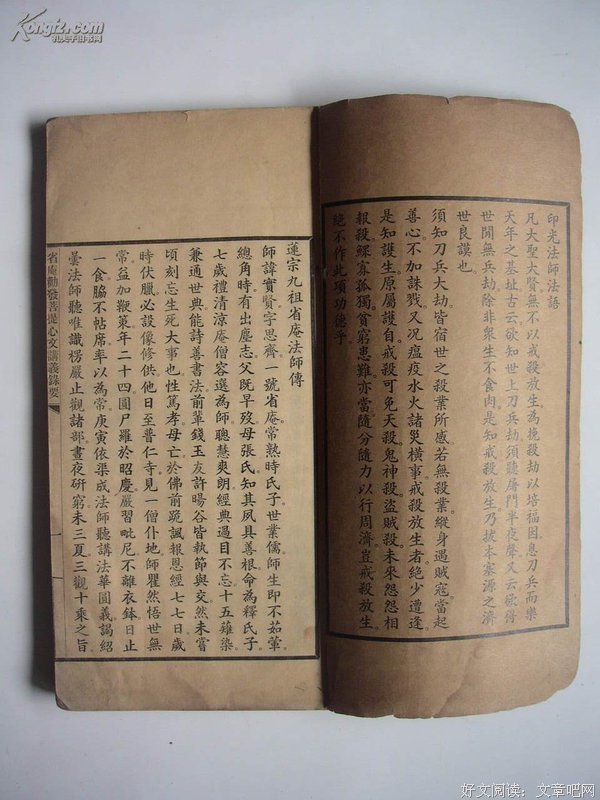 Kongfz.com
孔夫子旧书网
印光法師法語
凡大聖大賢無不以戒殺放生為挽殺劫以培福因息刀兵而樂
天年之基址古云欲知世上刀兵劫須聽屠門半夜聲又云欲得
世間無兵劫除非衆生不食肉是知戒殺放生乃拔本塞源之濟
世良謨也
須知刀兵大劫皆宿世之殺業所感若無殺業縱身遇賊寇當起
善心不加誅戮又况瘟疫水火諸災橫事戒殺放生者絶少遭逢
是知護生原屬護自戒殺可免天殺鬼神殺盜賊殺未來怨怨相
報殺鰥寡孤獨貧窮患難亦當隨分隨力以行周濟豈戒殺放生
絶不作此項功德乎
蓮宗九祖省庵法師傳
師諱實賢字思齊一號省庵常熟時氏子世業儒師生即不茹葷
總角時有出塵志父既早歿母張氏知其夙具善根命為釋氏子
七歲禮清涼庵僧容選為師聰慧爽朗經典過目不忘十五薙染
兼通世典能詩善書法前輩錢玉友許暘谷皆執節與交然未嘗
頃刻忘生死大事也性篤孝母亡於佛前跪諷報恩經七七日歲
時伏臘必設像修供他日至普仁寺見一僧仆地師瞿然悟世無
常益加鞭策年二十四圓尸羅於昭慶嚴習毗尼不離衣鉢日止
一食脇不帖席率以為常庚寅依渠成法師聽講法華圓義謁紹
曇法師聽唯識楞嚴止觀諸部晝夜研窮未三夏三觀十乘之旨
省庵勸發菩提心文講義錄要
一
好文阅读：文章吧网